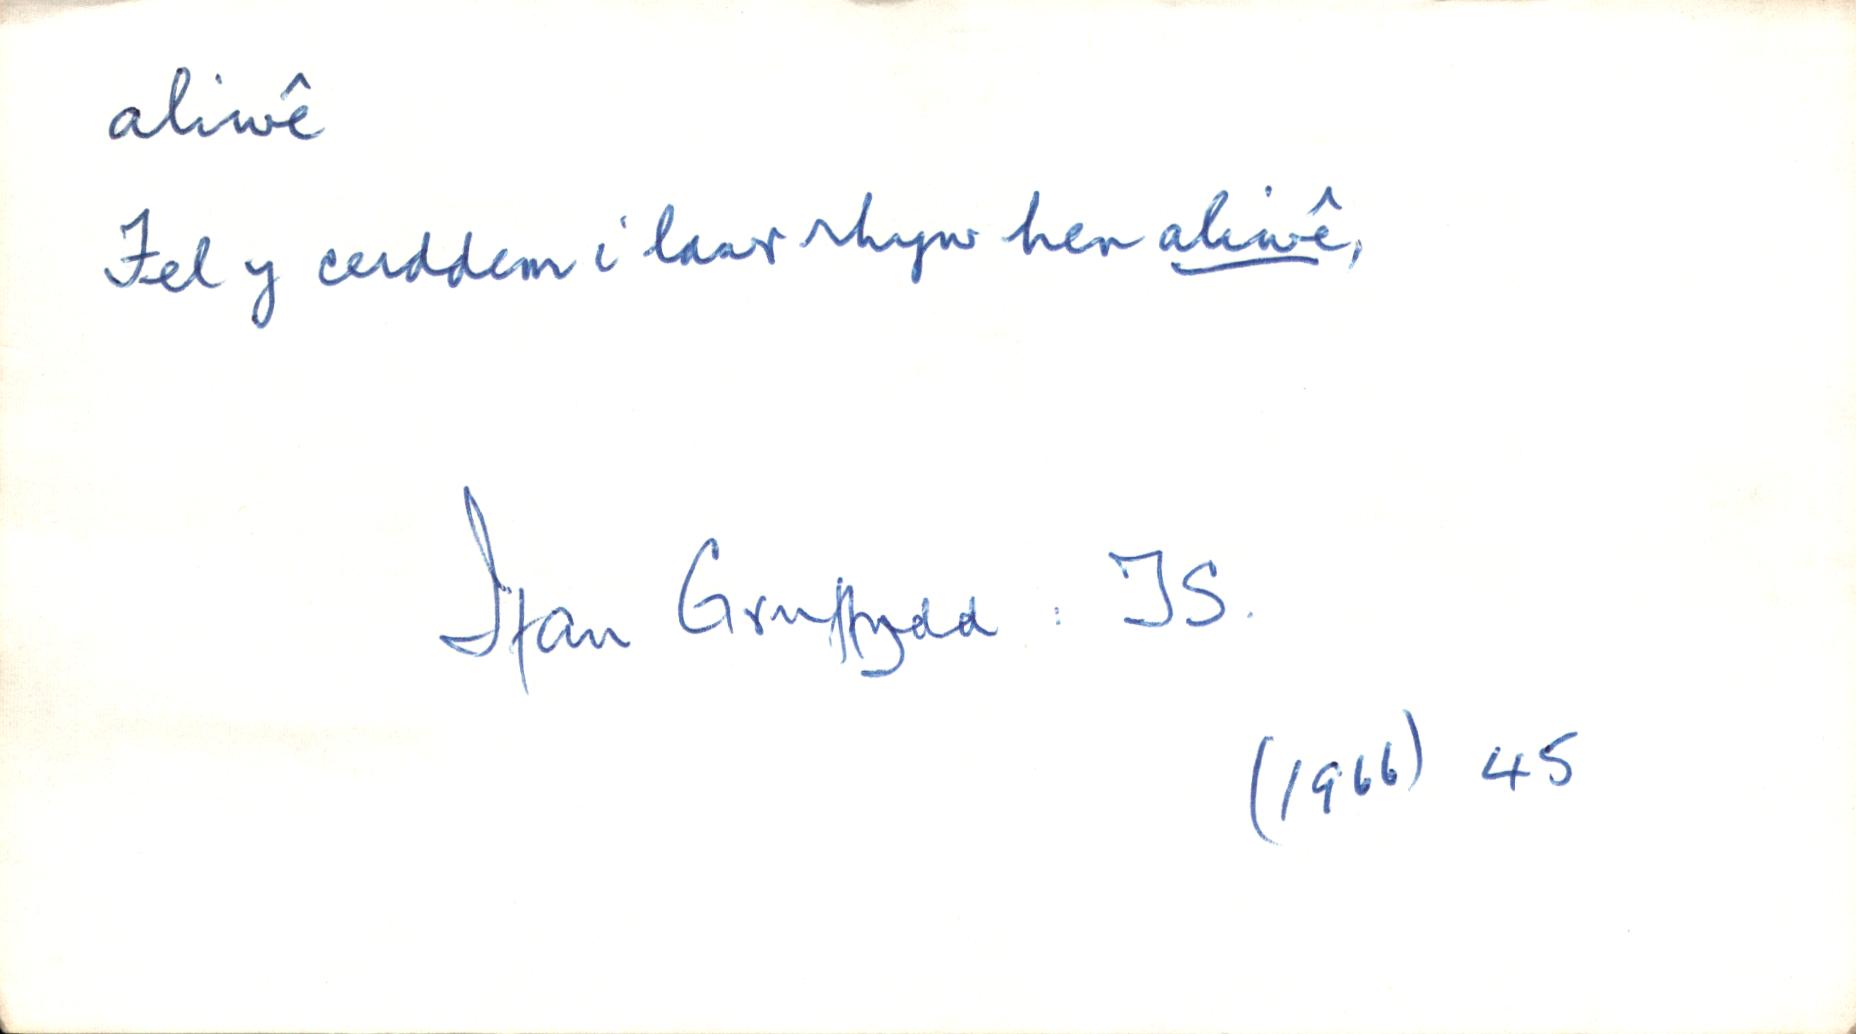 aliwê
Fel y cerddem i lawr rhyw hen aliwê,
Ifan Gruffydd : TS.
(1966) 45